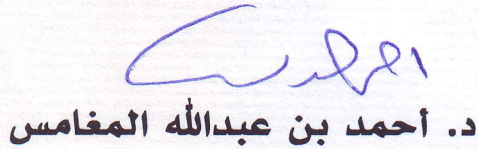 د. أحمد بن عبدالله المغامس